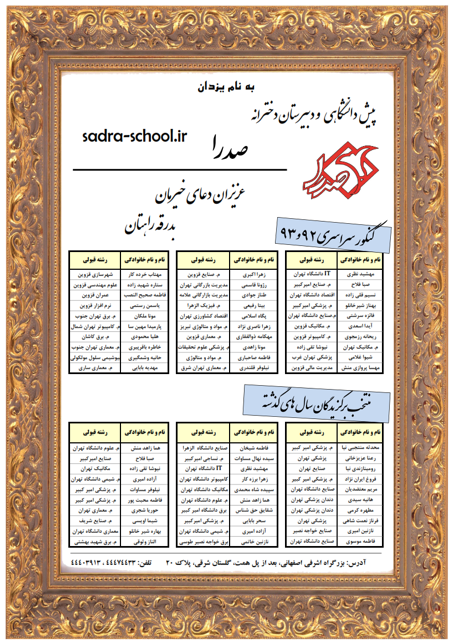 به نام یزدان
پیش دانشگاهی و دبیرستان دخترانه
صدرا
sadra-school.ir
عزیزان دعای خیرمان
بدرقه راهتان
کنکور سراسری ۹۲ و ۹۳
نام و نام خانوادگی رشته قبولی
مهشید نظری IT دانشگاه تهران
صبا فلاح م. صنایع امیر کبیر
نسیم قلی زاده اقتصاد دانشگاه تهران
بهناز شیر خانلو م. پزشکی امیر کبیر
فائزه سرشتی م. صنایع دانشگاه تهران
آیدا اسعدی م. مکانیک قزوین
ریحانه رزمجوی م. کامپیوتر قزوین
م. مکانیک تهران نیوشا تقی زاده
شیوا غلامی پزشکی تهران غرب
مهسا پروازی منش مدیریت مالی قزوین
نام و نام خانوادگی رشته قبولی
زهرا اکبری م. صنایع قزوین
رژونا قاسمی مدیریت بازرگانی تهران
طناز جوادی مدیریت بازرگانی علامه
بیتا رفیعی م. فیزیک الزهرا
پگاه اسلامی اقتصاد کشاورزی تهران
زهرا ناصری نژاد م. مواد و متالوژی تبریز
مهکامه ذوالفقاری م. معماری قزوین
مونا زاهدی م. پزشکی علوم تحقیقات
فاطمه صاحباری م. مواد و متالوژی
نیلوفر قلندری م. معماری تهران شرق
نام و نام خانوادگی رشته قبولی
مهتاب خرده کار شهرسازی قزوین
ستاره شهید زاده علوم مهندسی قزوین
فاطمه صحیح النصب عمران قزوین
یاسمن رستمی نرم افزار قزوین
مونا ملکان م. برق تهران جنوب
پارمیدا مهین سا م. کامپیوتر تهران شمال
هلیا محمودی م. برق کاشان
خاطره باقرپیری م. معماری تهران جنوب
حانیه وشمگیری بیوشیمی سلول مولکولی
مهدیه بابایی م. معماری ساری
منتخب برگزیدگان سال های گذشته
نام و نام خانوادگی رشته قبولی
محدثه منتجبی نیا م. پزشکی امیر کبیر
رعنا عزیزخانی پزشکی تهران
رومینا زندی نیا صنایع تهران
فروغ ایران نژاد م. پزشکی امیر کبیر
مریم معتضدیان صنایع دانشگاه تهران
هانیه سیدی دندان پزشکی تهران
مطهره کرمی دندان پزشکی تهران
فرناز نعمت شاهی پزشکی تهران
نازنین امیری صنایع خواجه نصیر
فاطمه موسوی صنایع دانشگاه تهران
نام و نام خانوادگی رشته قبولی
فاطمه شیخان صنایع دانشگاه الزهرا
سیده نهال مساوات م. نساجی امیر کبیر
مهشید نظری IT دانشگاه تهران
زهرا برزه کار کامپیوتر دانشگاه تهران
سپیده شاه محمدی مکانیک دانشگاه تهران
هما زاهد منش م. علوم دانشگاه تهران
شقایق حق شناس برق دانشگاه امیر کبیر
سحر بابایی م. پزشکی امیر کبیر
آزاده امیری م. شیمی دانشگاه تهران
نازنین حاتمی برق خواجه نصیر طوسی
نام و نام خانوادگی رشته قبولی
هما زاهد منش م. علوم دانشگاه تهران
صبا فلاح صنایع امیر کبیر
نیوشا تقی زاده مکانیک تهران
آزاده امیری م. شیمی دانشگاه تهران
نیلوفر مساوات م. پزشکی امیر کبیر
فاطمه محبت پور م. پزشکی امیر کبیر
حوریا شجری م. معماری تهران
شیما اویسی م. صنایع شریف
بهاره شیر خانلو م. معماری دانشگاه تهران
الناز وثوقی م. برق شهید بهشتی
آدرس: بزرگراه اشرفی اصفهانی، بعد از پل همت، گلستان شرقی، پلاک ۲۰ تلفن: ۴۴۴۷۴۴۳۳ ، ۴۴۴۰۳۹۱۳